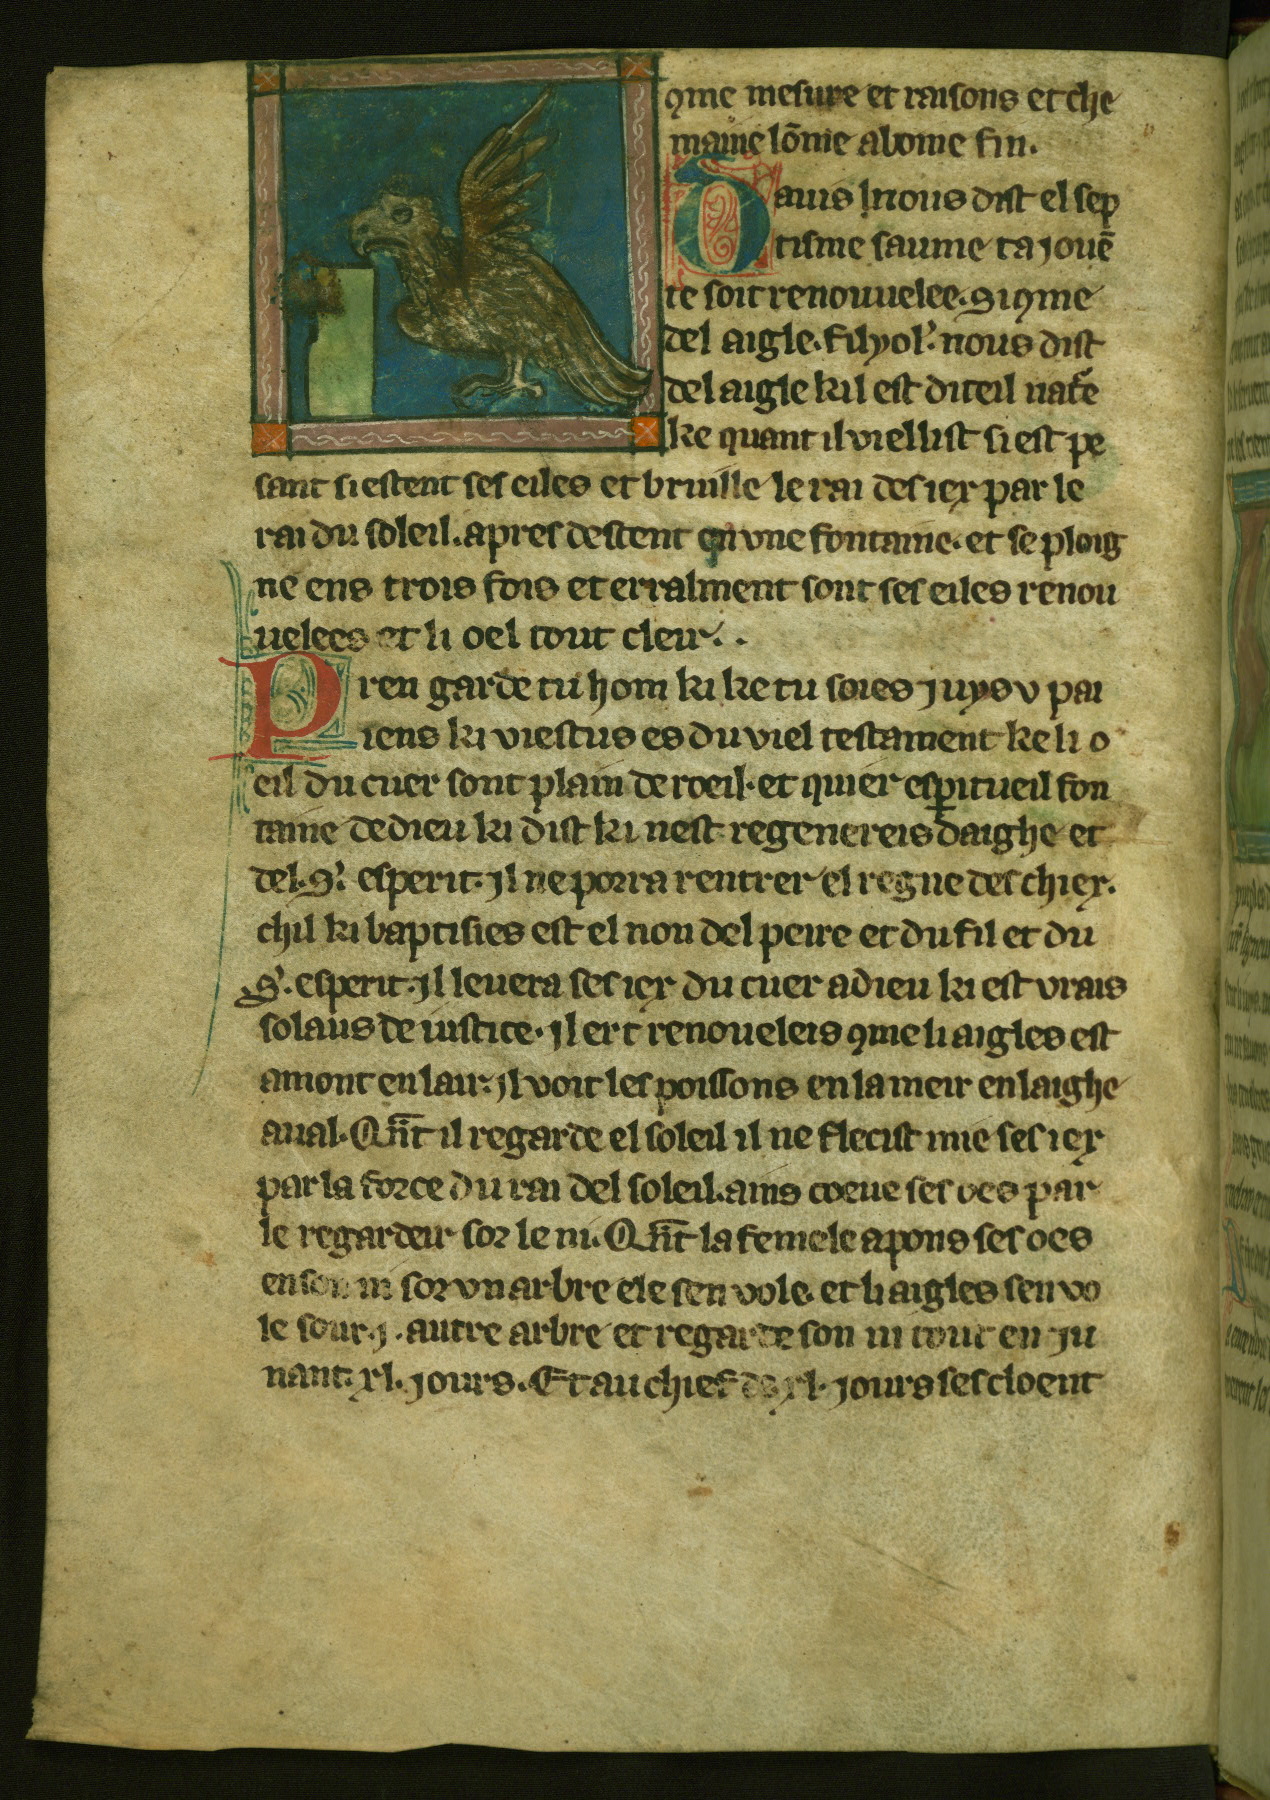 ꝯme mesure et raisons et che
maine lōme a bone fin.
Dauis li nous dist el sep
tisme saume ta jouē
te soit renouuelee. Si ꝯme
del aigle. fiſyol'. nous dist
del aigle kil est de teil nat̄e
ke quant il viellist si est pe
sant si estent ses eiles et bruille le rai des iex par le
rai du soleil. apres destent en vne fontaine. et se ploig
ne ens trois fois et erralment sont ses eiles renou
uelees et li oel tout cleir..
Pren garde tu hom ki ke tu soies juys v pai
iens ki viestus es du viel testament ke li o
eil du cuer sont plain de roeil. et quier esp̲ituéil fon
taine de dieu ki dist ki nest regenereis daighe et
del. S'. esperit. jl ne porra rentrer el regne des chiex.
chil ki baptisies est el non del peire et du fil et du
S'. esperit. jl leuera ses iex du cuer a dieu ki est vrais
solaus de iustice. jl ert renoueleis ꝯme li aigles est
amont en lair. jl voit les poissons en la meir en laighe
aual. Qn̄t il regarde el soleil il ne flecist mie ses iex
par la force du rai del soleil. ains coeue ses oes par
le regardeir sor le ni. Qn̄t la femele a pons ses oes
en son ni sor vn arbre ele sen vole. et li aigles sen vo
le sour .j. autre arbre et regarde son ni tout en ju
nant. xl. jours. Et au chief de xl. jours ses cloent